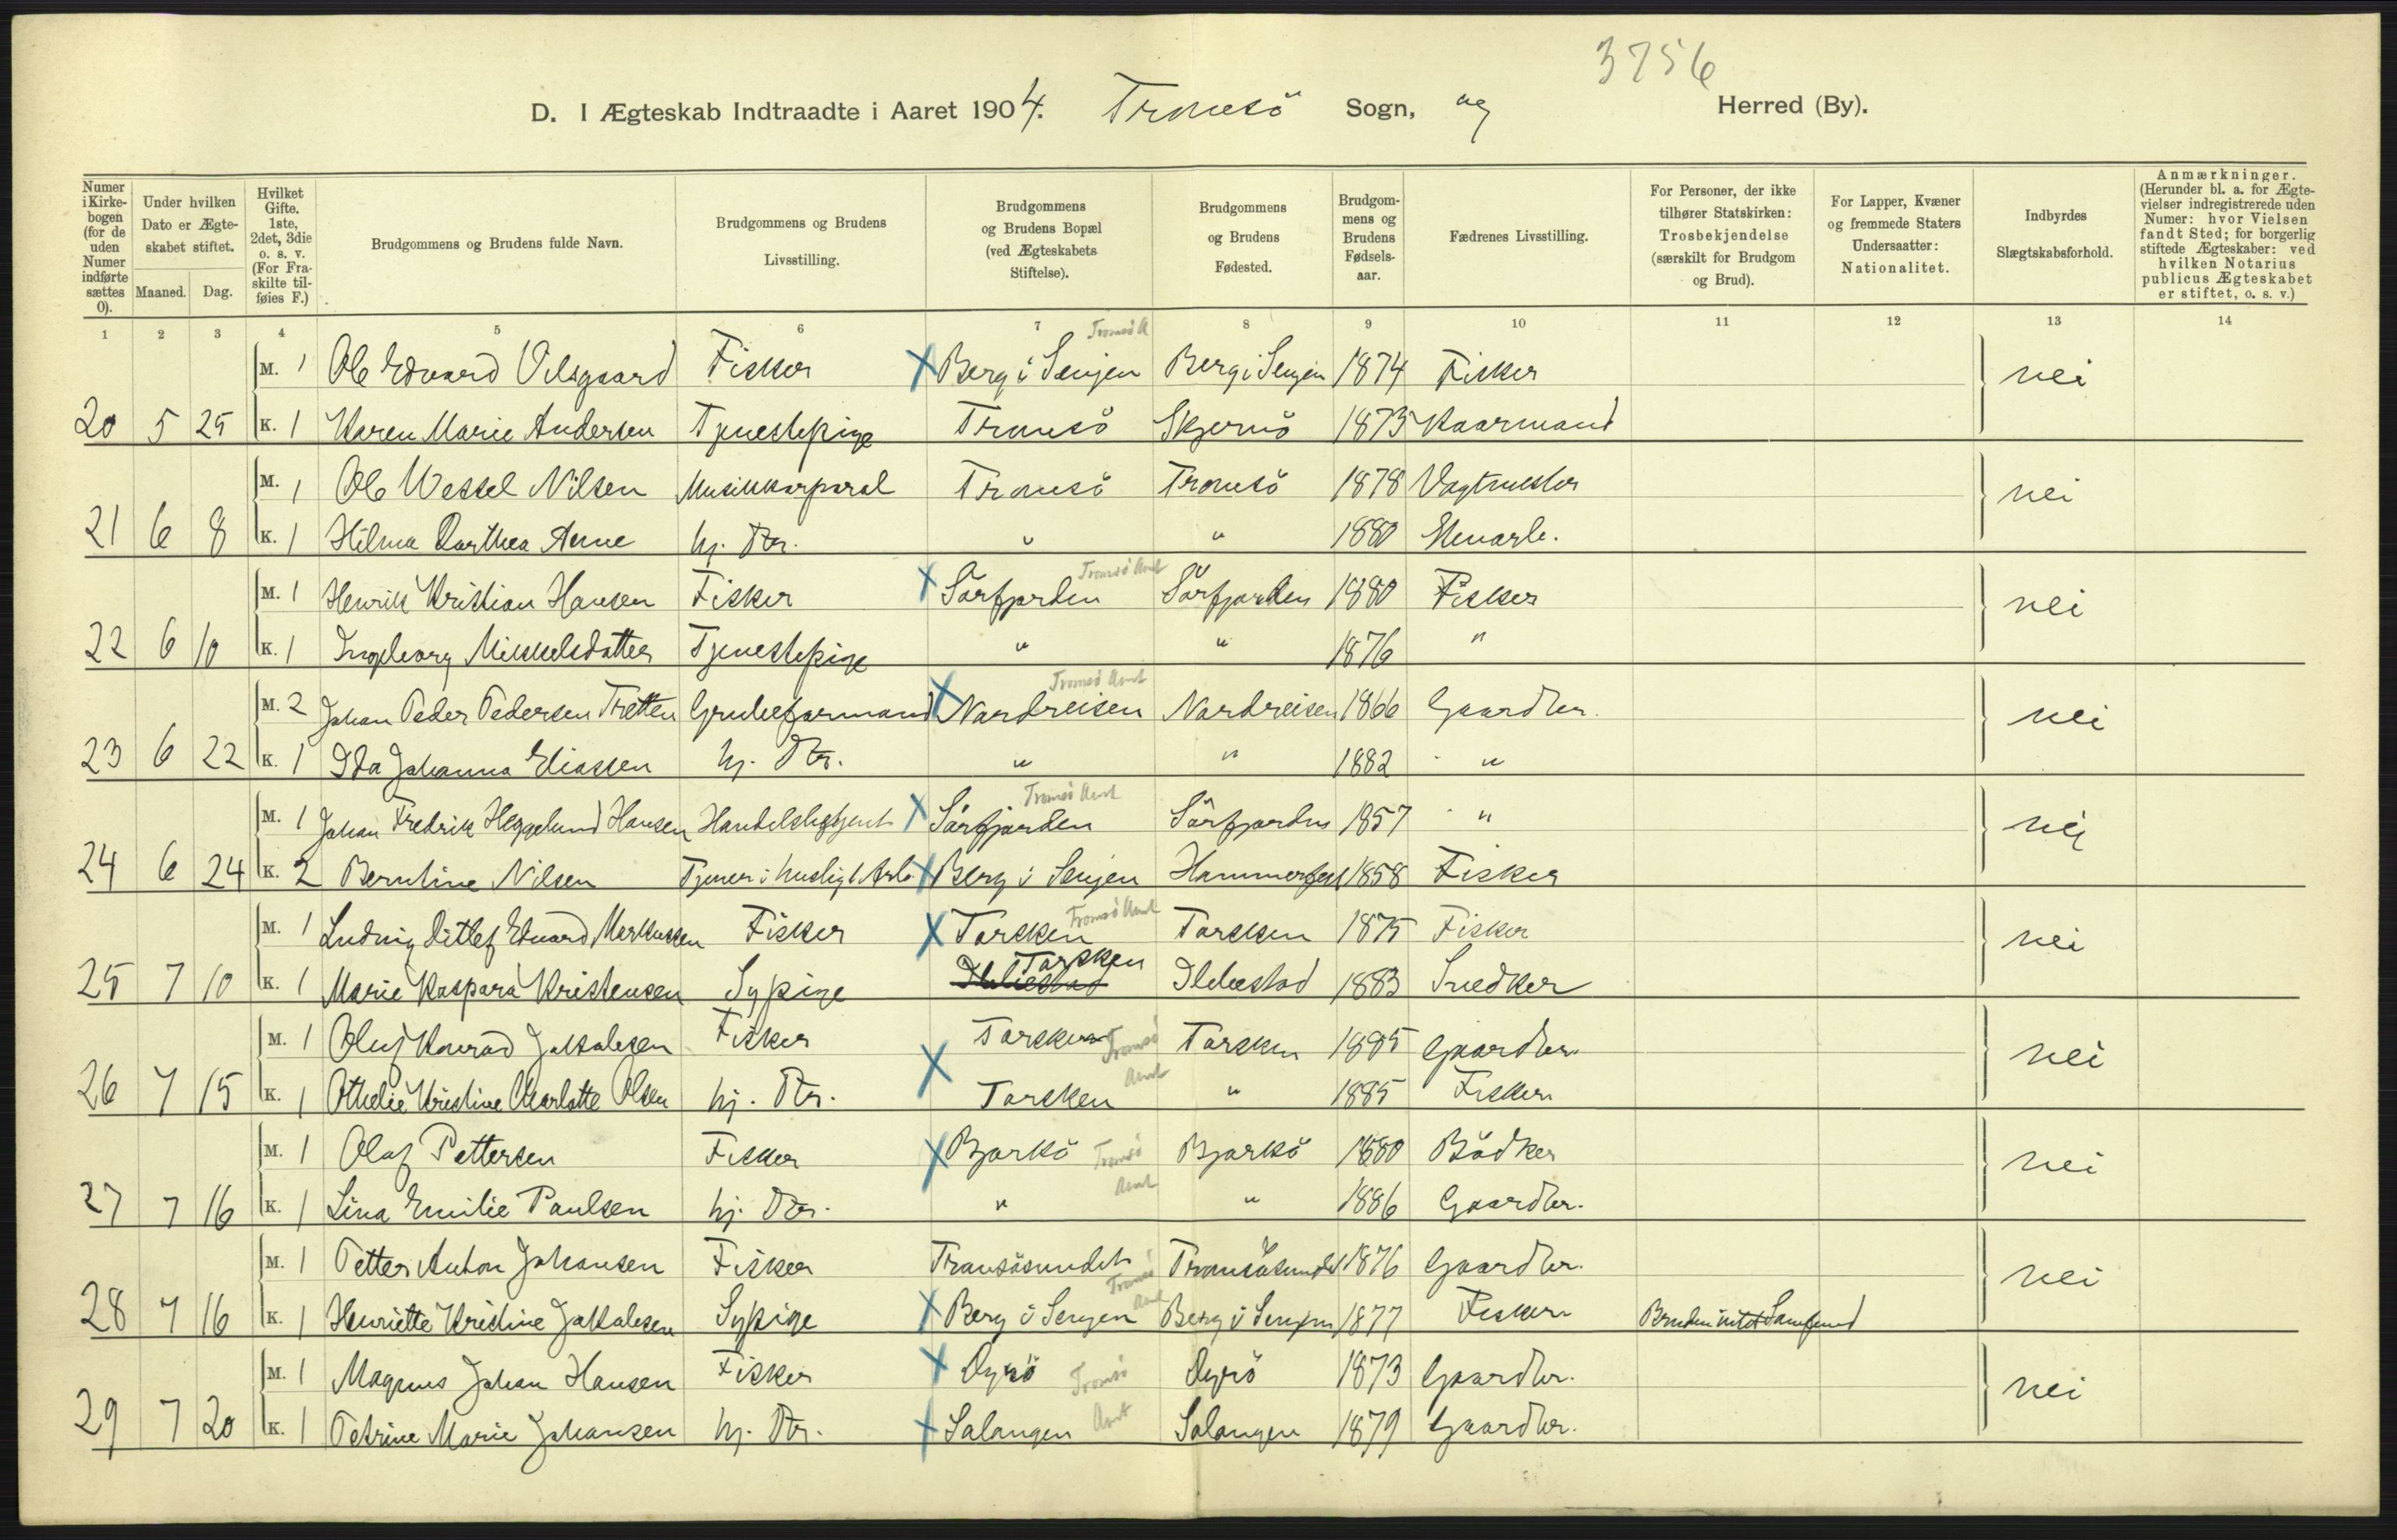 3756
D. I Ægteskab Indtraadte i Aaret 1904. Tromsö Sogn, og Herred (By).
Numer i Kirkebogen (for de uden Numer indførte sættes 0).
Under hvilken Dato er Ægteskabet stiftet.
Maaned. Dag.
Hvilket Gifte. 1ste, 2det, 3die o. s. v. (For Fraskilte tilføies F.)
Brudgommens og Brudens fulde Navn.
Brudgommens og Brudens Livsstilling.
Brudgommens og Brudens Bopæl (ved Ægteskabets Stiftelse).
Brudgommens og Brudens Fødested.
Brudgommens og Brudens Fødselsaar.
Fædrenes Livsstilling.
For Personer, der ikke tilhører Statskirken: Trosbekjendelse (særskilt for Brudgom og Brud).
For Lapper, Kvæner og fremmede Staters Undersaatter: Nationalitet.
Indbyrdes Slægtskabsforhold.
Anmærkninger. (Herunder bl. a. for Ægtevielser indregistrerede uden Numer: hvor Vielsen fandt Sted; for borgerlig stiftede Ægteskaber: ved hvilken Notarius publicus Ægteskabet er stiftet, o. s. v.)
1 2 3 4 5 6 7 8 9 10 11 12 13 14
Tromsö A
M. 1 Ole Edvard Vilsgaard Fisker X Berg i Senjen Berg i Senjen 1874 Fisker nei
20 5 25 K. 1 Karen Marie Andersen Tjenestepige Tromsö Skjervö 1873 Kaarmand
M. 1 Ole Wessel Nilsen Musikkorporal Tromsö Tromsö 1878 Vagtmester nei
21 6 8 K. 1 Hilma Darthea Arne hj. Dtr. " " 1880 Stenarb.
Tromsö Amt
M. 1 Henrik Kristian Hansen Fisker X Sörfjorden Sörfjorden 1880 Fisker nei
22 6 10 K. 1 Ingeborg Mikkelsdatter Tjenestepige " " 1876 "
Tromsö Amt
M. 2 Johan Peder Pedersen Tretten Grubeformand X Nordreisen Nordreisen 1866 Gaardbr. nei
23 6 22 K. 1 Ida Johanna Eliassen hj. Dtr. " " 1882 "
Tromsö Amt
M. 1 Johan Fredrik Heggelund Hansen Handelsbetjent X Sörfjorden Sörfjorden 1857 " nei
24 6 24 K. 2 Berntine Nilsen Tjener i husligt Arb. X Berg i Senjen Hammerfest 1858 Fisker
Tromsö Amt
M. 1 Ludvig Ditlef Edvard Markussen Fisker X Torsken Torsken 1875 Fisker nei
Torsken
25 7 10 K. 1 Marie Kaspara Kristensen Sypige Ibbestad Ibbestad 1883 Snedker
M. 1 Oluf Konrad Jakobsen Fisker X Torsken Tromsö Amt Torsken 1885 Gaardbr. nei
26 7 15 K. 1 Othelie Kristine Charlotte Olsen hj. Dtr. Torsken " 1885 Fisker
M. 1 Olaf Pettersen Fisker X Bjarkö Tromsö Amt Bjarkö 1880 Bödker nei
27 7 16 K. 1 Lina Emilie Paulsen hj. Dtr. " " 1886 Gaardbr.
M. 1 Petter Anton Johansen Fisker Tromsösundet Tromsösundet 1876 Gaardbr. nei
Tromsö Amt
28 7 16 K. 1 Henriette Kristine Jakobsen Sypige X Berg i Senjen Berg i Senjen 1877 Fisker
M. 1 Magnus Johan Hansen Fisker X Dyrö Tromsö Amt Dyrö 1873 Gaardbr. nei
29 7 20 K. 1 Petrine Marie Johansen hj. Dtr. X Salangen Salangen 1879 Gaardbr.